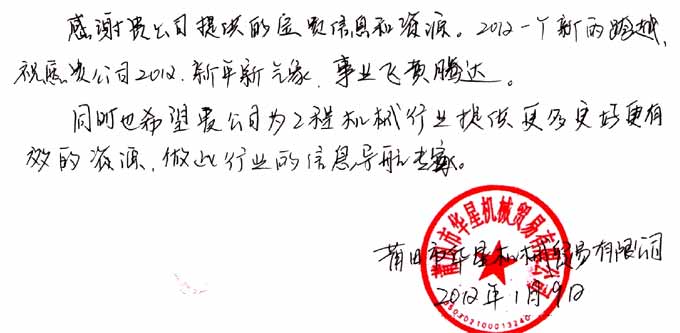 感谢贵公司提供的宝贵信息和资源。2012一个新的跨越,
祝愿贵公司2012.新年新气象.事业飞黄腾达。
同时也希望贵公司为工程机械行业提供更多更好更有
效的资源.做此行业的信息导航专家。
莆田市华星机械贸易有限公司
莆田市华星机械贸易有限公司
2012年1月9日
350302100013240